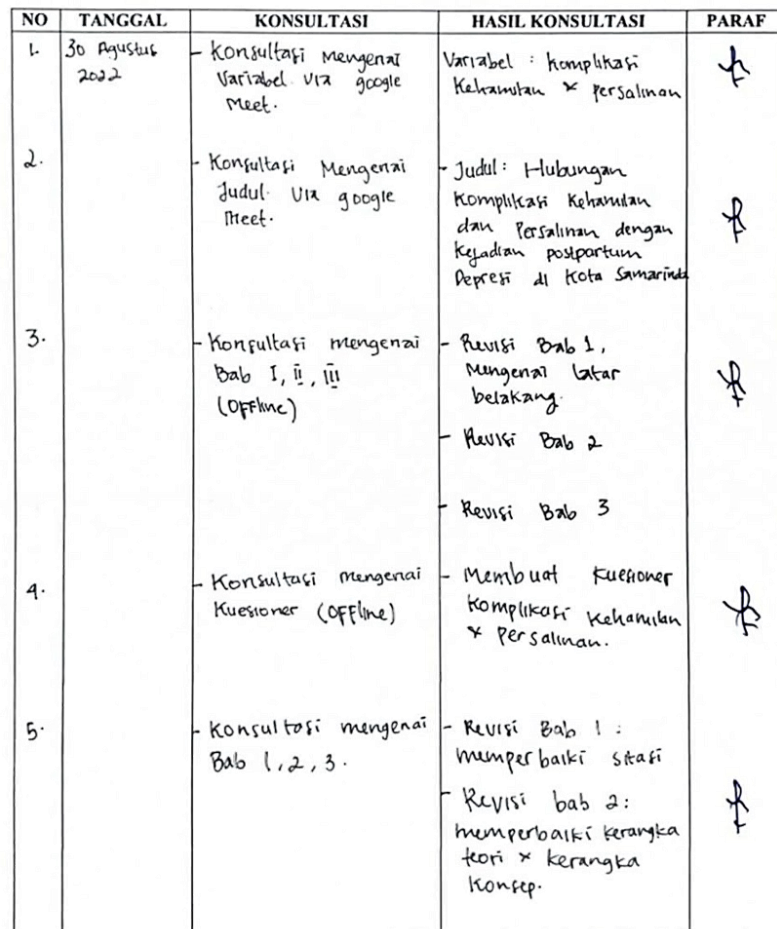 NO TANGGAL KONSULTASI HASIL KONSULTASI PARAF
1. 30 Agustus 2022
- Konsultasi Mengenai
Variabel via google
Meet.
Variabel : Komplikasi
Kehamilan & persalinan
2.
- Konsultasi Mengenai
Judul Via google
Meet.
- Judul : Hubungan
Komplikasi Kehamilan
dan Persalinan dengan
Kejadian postpartum
Depresi di Kota Samarinda
3.
- Konsultasi mengenai
Bab I, II, III
(OFFline)
- Revisi Bab 1,
Mengenai latar
belakang.
- Revisi Bab 2
- Revisi Bab 3
4.
- Konsultasi mengenai
Kuesioner (OFFline)
- Membuat Kuesioner
Komplikasi Kehamilan
& persalinan.
5.
- Konsultasi mengenai
Bab 1, 2, 3.
- Revisi Bab 1 :
memperbaiki sitasi
- Revisi bab 2 :
memperbaiki kerangka
teori & kerangka
Konsep.